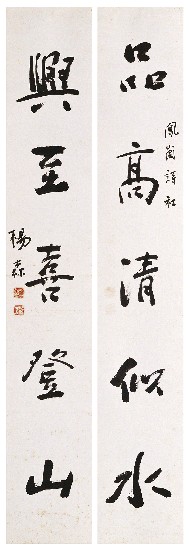 品高清似水
鳳崗詩社
興至喜登山
楊森